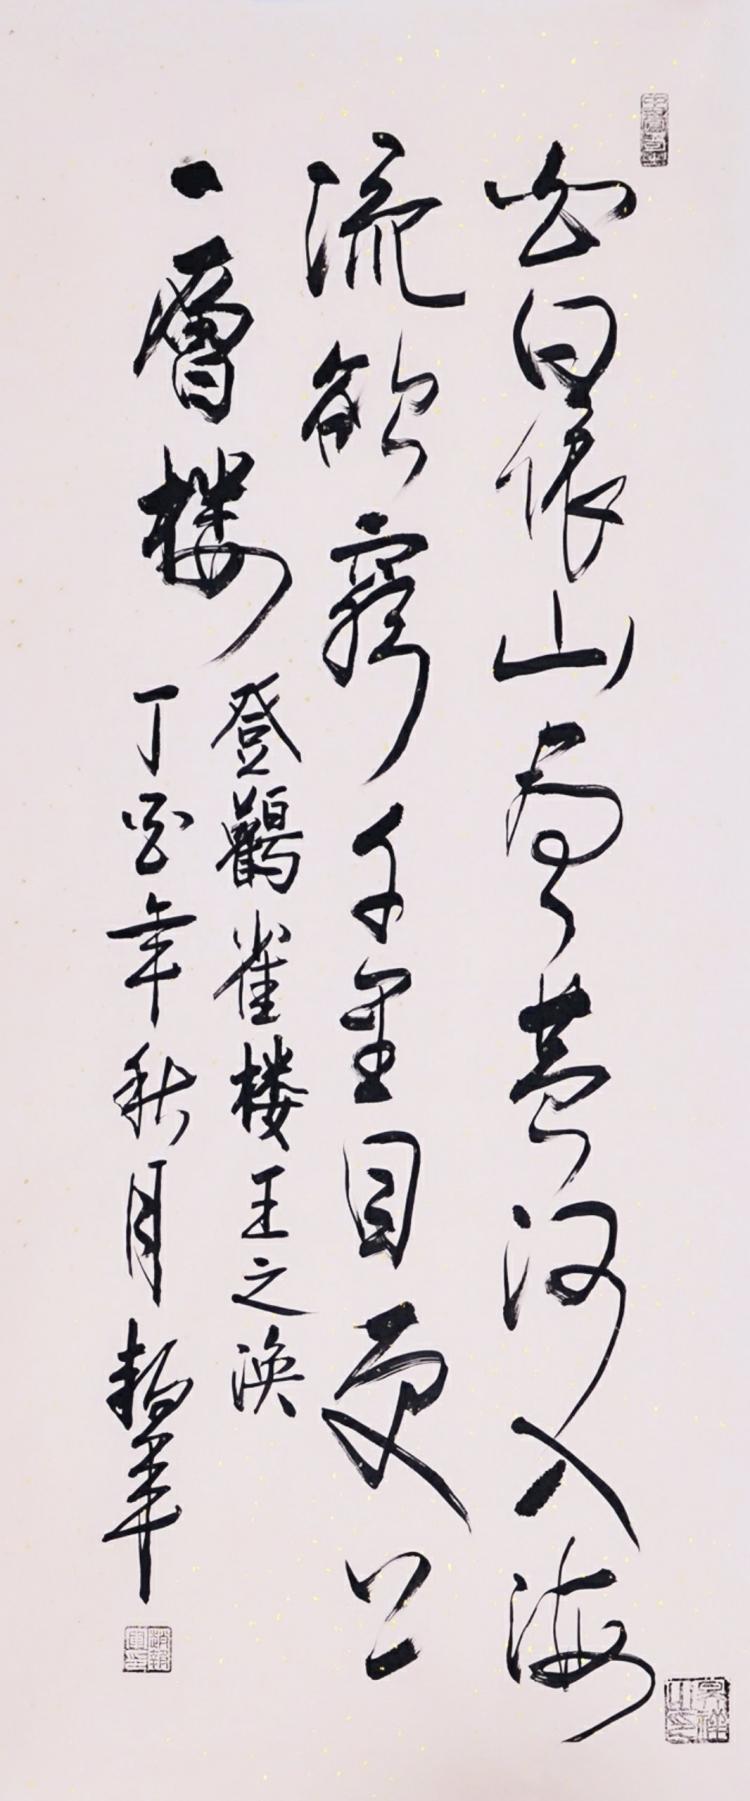 白日依山尽黄河入海
流欲窮千里目更上
一層楼
登鸛雀楼王之涣
丁酉年秋月